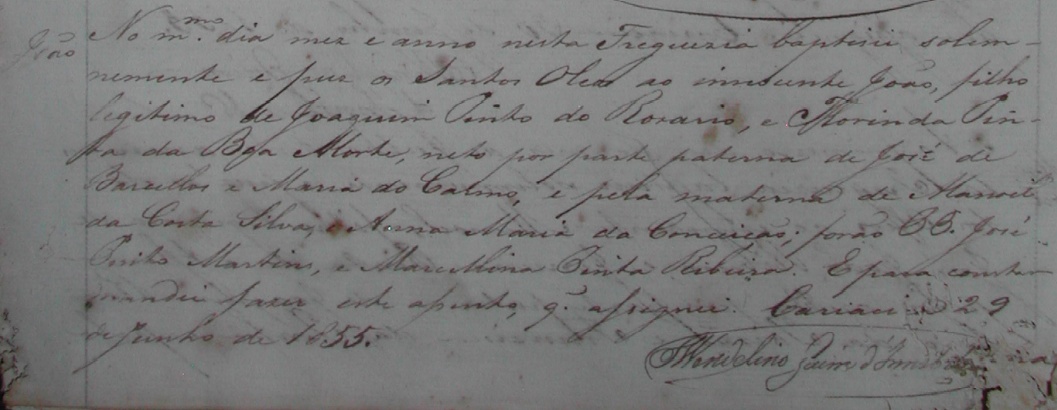 João
No m.mo dia mez e anno nesta Freguezia baptisei solem-
nemente e puz os Santos Oleos ao innocente João, filho
legitimo de Joaquim Pinto do Rozario, e Florinda Pin-
ta da Boa Morte, neto por parte paterna de José de
Barcellos e Maria do Carmo, e pela materna de Manoel
da Costa Silva, e Anna Maria da Conceição; forão PP. José
Pinto Martins, e Marcellina Pinta Ribeiro. E para constar
mandei fazer este assento, q. assignei. Cariaci 29
de Junho de 1855.
Wendelino